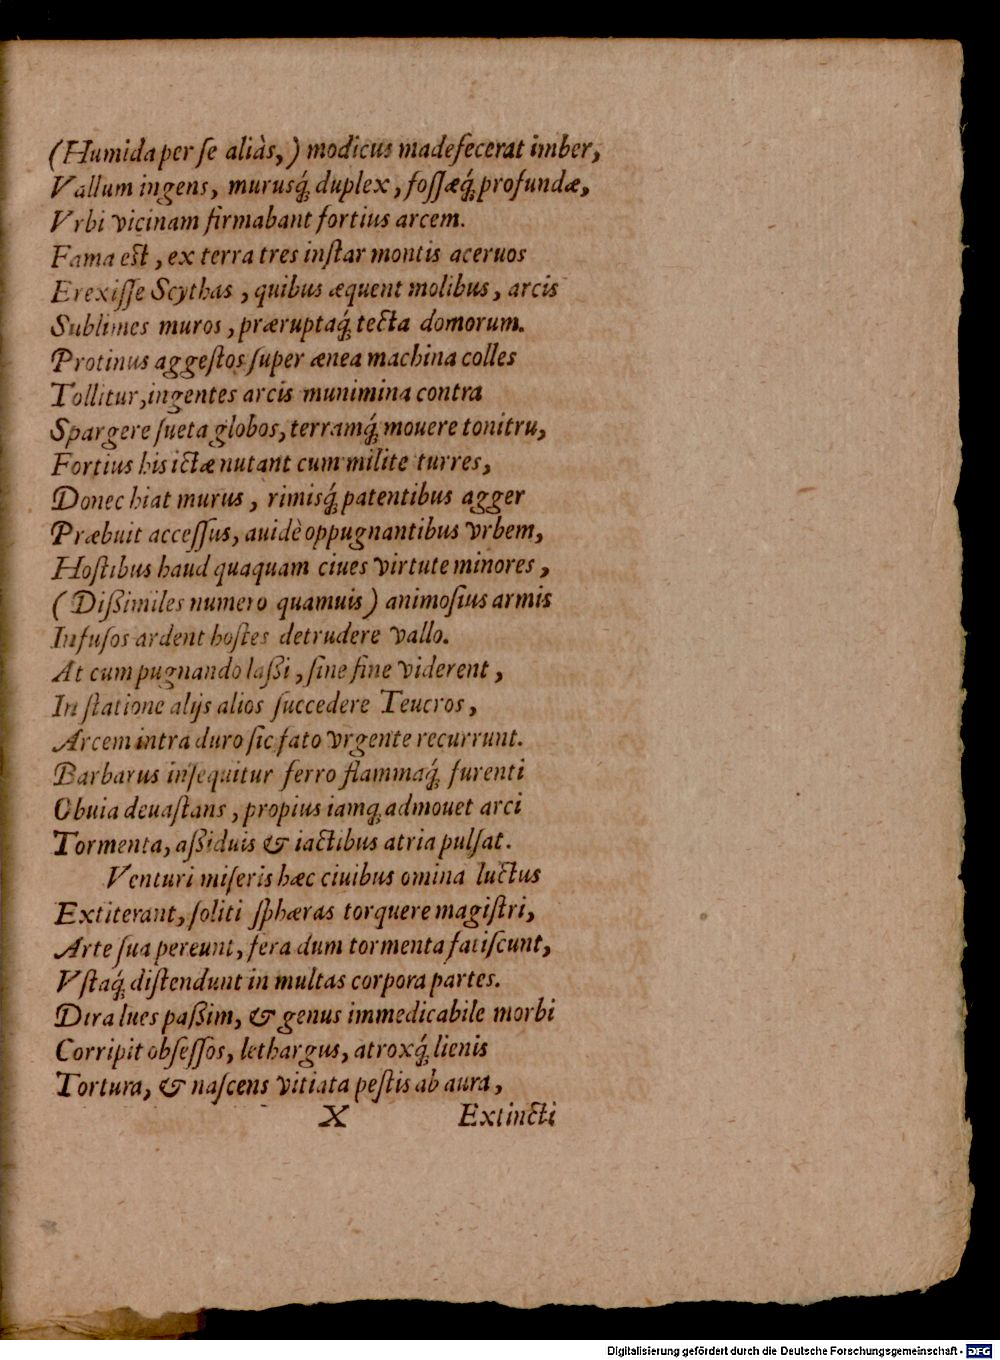 (Humida per ſe aliàs,) modicus madefecerat imber,
Vallum ingens, murusq́; duplex, foſſæq́; profundæ,
Vrbi vicinam firmabant fortius arcem.
Fama eſt, ex terra tres inſtar montis aceruos
Erexiſſe Scythas, quibus æquent molibus, arcis
Sublimes muros, præruptaq́; tecta domorum.
Protinus aggeſtos ſuper ænea machina colles
Tollitur, ingentes arcis munimina contra
Spargere ſueta globos, terramq́; mouere tonitru,
Fortius his ictæ nutant cum milite turres,
Donec hiat murus, rimisq́; patentibus agger
Præbuit acceſſus, auidè oppugnantibus vrbem,
Hoſtibus haud quaquam ciues virtute minores,
(Dißimiles numero quamuis) animoſius armis
Infuſos ardent hoſtes detrudere vallo.
At cum pugnando laßi, ſine fine viderent,
In ſtatione alijs alios ſuccedere Teucros,
Arcem intra duro ſic fato vrgente recurrunt.
Barbarus inſequitur ferro flammaq́; furenti
Obuia deuaſtans, propius iamq; admouet arci
Tormenta, aßiduis & iactibus atria pulſat.
Venturi miſeris hæc ciuibus omina luctus
Extiterant, ſoliti ſphæras torquere magiſtri,
Arte ſua pereunt, fera dum tormenta fatiſcunt,
Vſtaq́; diſtendunt in multas corpora partes.
Dira lues paßim, & genus immedicabile morbi
Corripit obſeſſos, lethargus, atroxq́; lienis
Tortura, & naſcens vitiata peſtis ab aura,
X Extincti
Digitalisierung gefördert durch die Deutsche Forschungsgemeinschaft - DFG